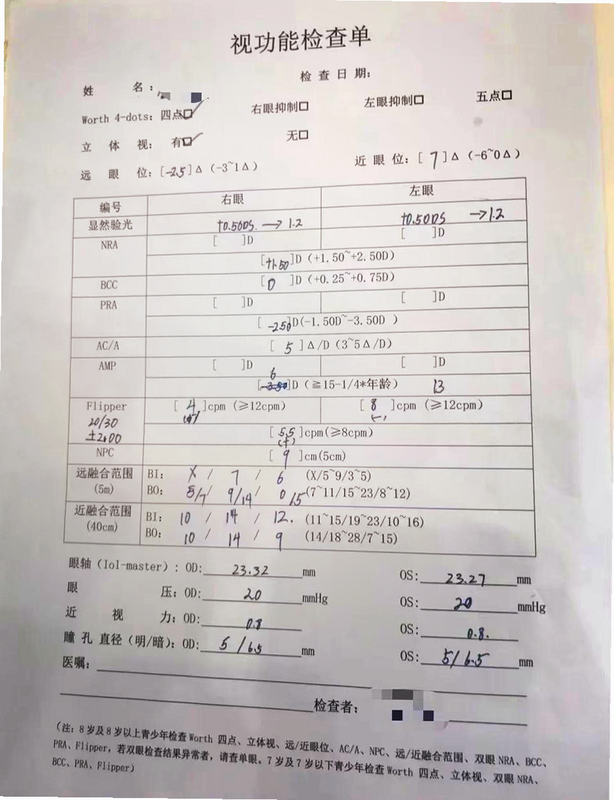 视功能检查单
姓 名： 检查日期：
Worth 4-dots: 四点☑ 右眼抑制□ 左眼抑制□ 五点□
立 体 视： 有☑ 无□
远 眼 位：[-2.5]Δ（-3~1Δ） 近 眼 位：[ 7 ]Δ（-6~0Δ）
编号 右眼 左眼
显然验光 +0.50DS → 1.2 +0.50DS → 1.2
NRA [ ]D [ ]D
[+1.50]D（+1.50~+2.50D）
BCC [ 0 ]D（+0.25~+0.75D）
PRA [ ]D [ ]D
[ -2.50]D(-1.50D~-3.50D )
AC/A [ 5 ]Δ/D（3~5Δ/D）
AMP [ ]D [ ]D
6
[-3.50]D（≧15-1/4*年龄） 13
Flipper [ 4 ]cpm (≥12cpm) [ 8 ]cpm (≥12cpm)
20/30
±2.00 [ 5.5 ]cpm(≥8cpm)
(+)
NPC [ 9 ]cm(5cm)
远融合范围 BI： X / 7 / 6 (X/5~9/3~5)
(5m) BO： 5/7 / 9/14 / 0/5 (7~11/15~23/8~12)
近融合范围 BI： 10 / 14 / 12. (11~15/19~23/10~16)
(40cm) BO： 10 / 14 / 9 (14/18~28/7~15)
眼轴（Iol-master）: OD: 23.32 mm OS: 23.27 mm
眼 压: OD: 20 mmHg OS: 20 mmHg
近 视 力: OD: 0.8 OS: 0.8.
瞳孔直径（明/暗）: OD: 5/6.5 mm OS: 5/6.5 mm
医嘱:
检查者:
（注：8 岁及 8 岁以上青少年检查 Worth 四点、立体视、远/近眼位、AC/A、NPC、远/近融合范围、双眼 NRA、BCC、
PRA、Flipper，若双眼检查结果异常者，请查单眼。7 岁及 7 岁以下青少年检查 Worth 四点、立体视、双眼 NRA、
BCC、PRA、Flipper）